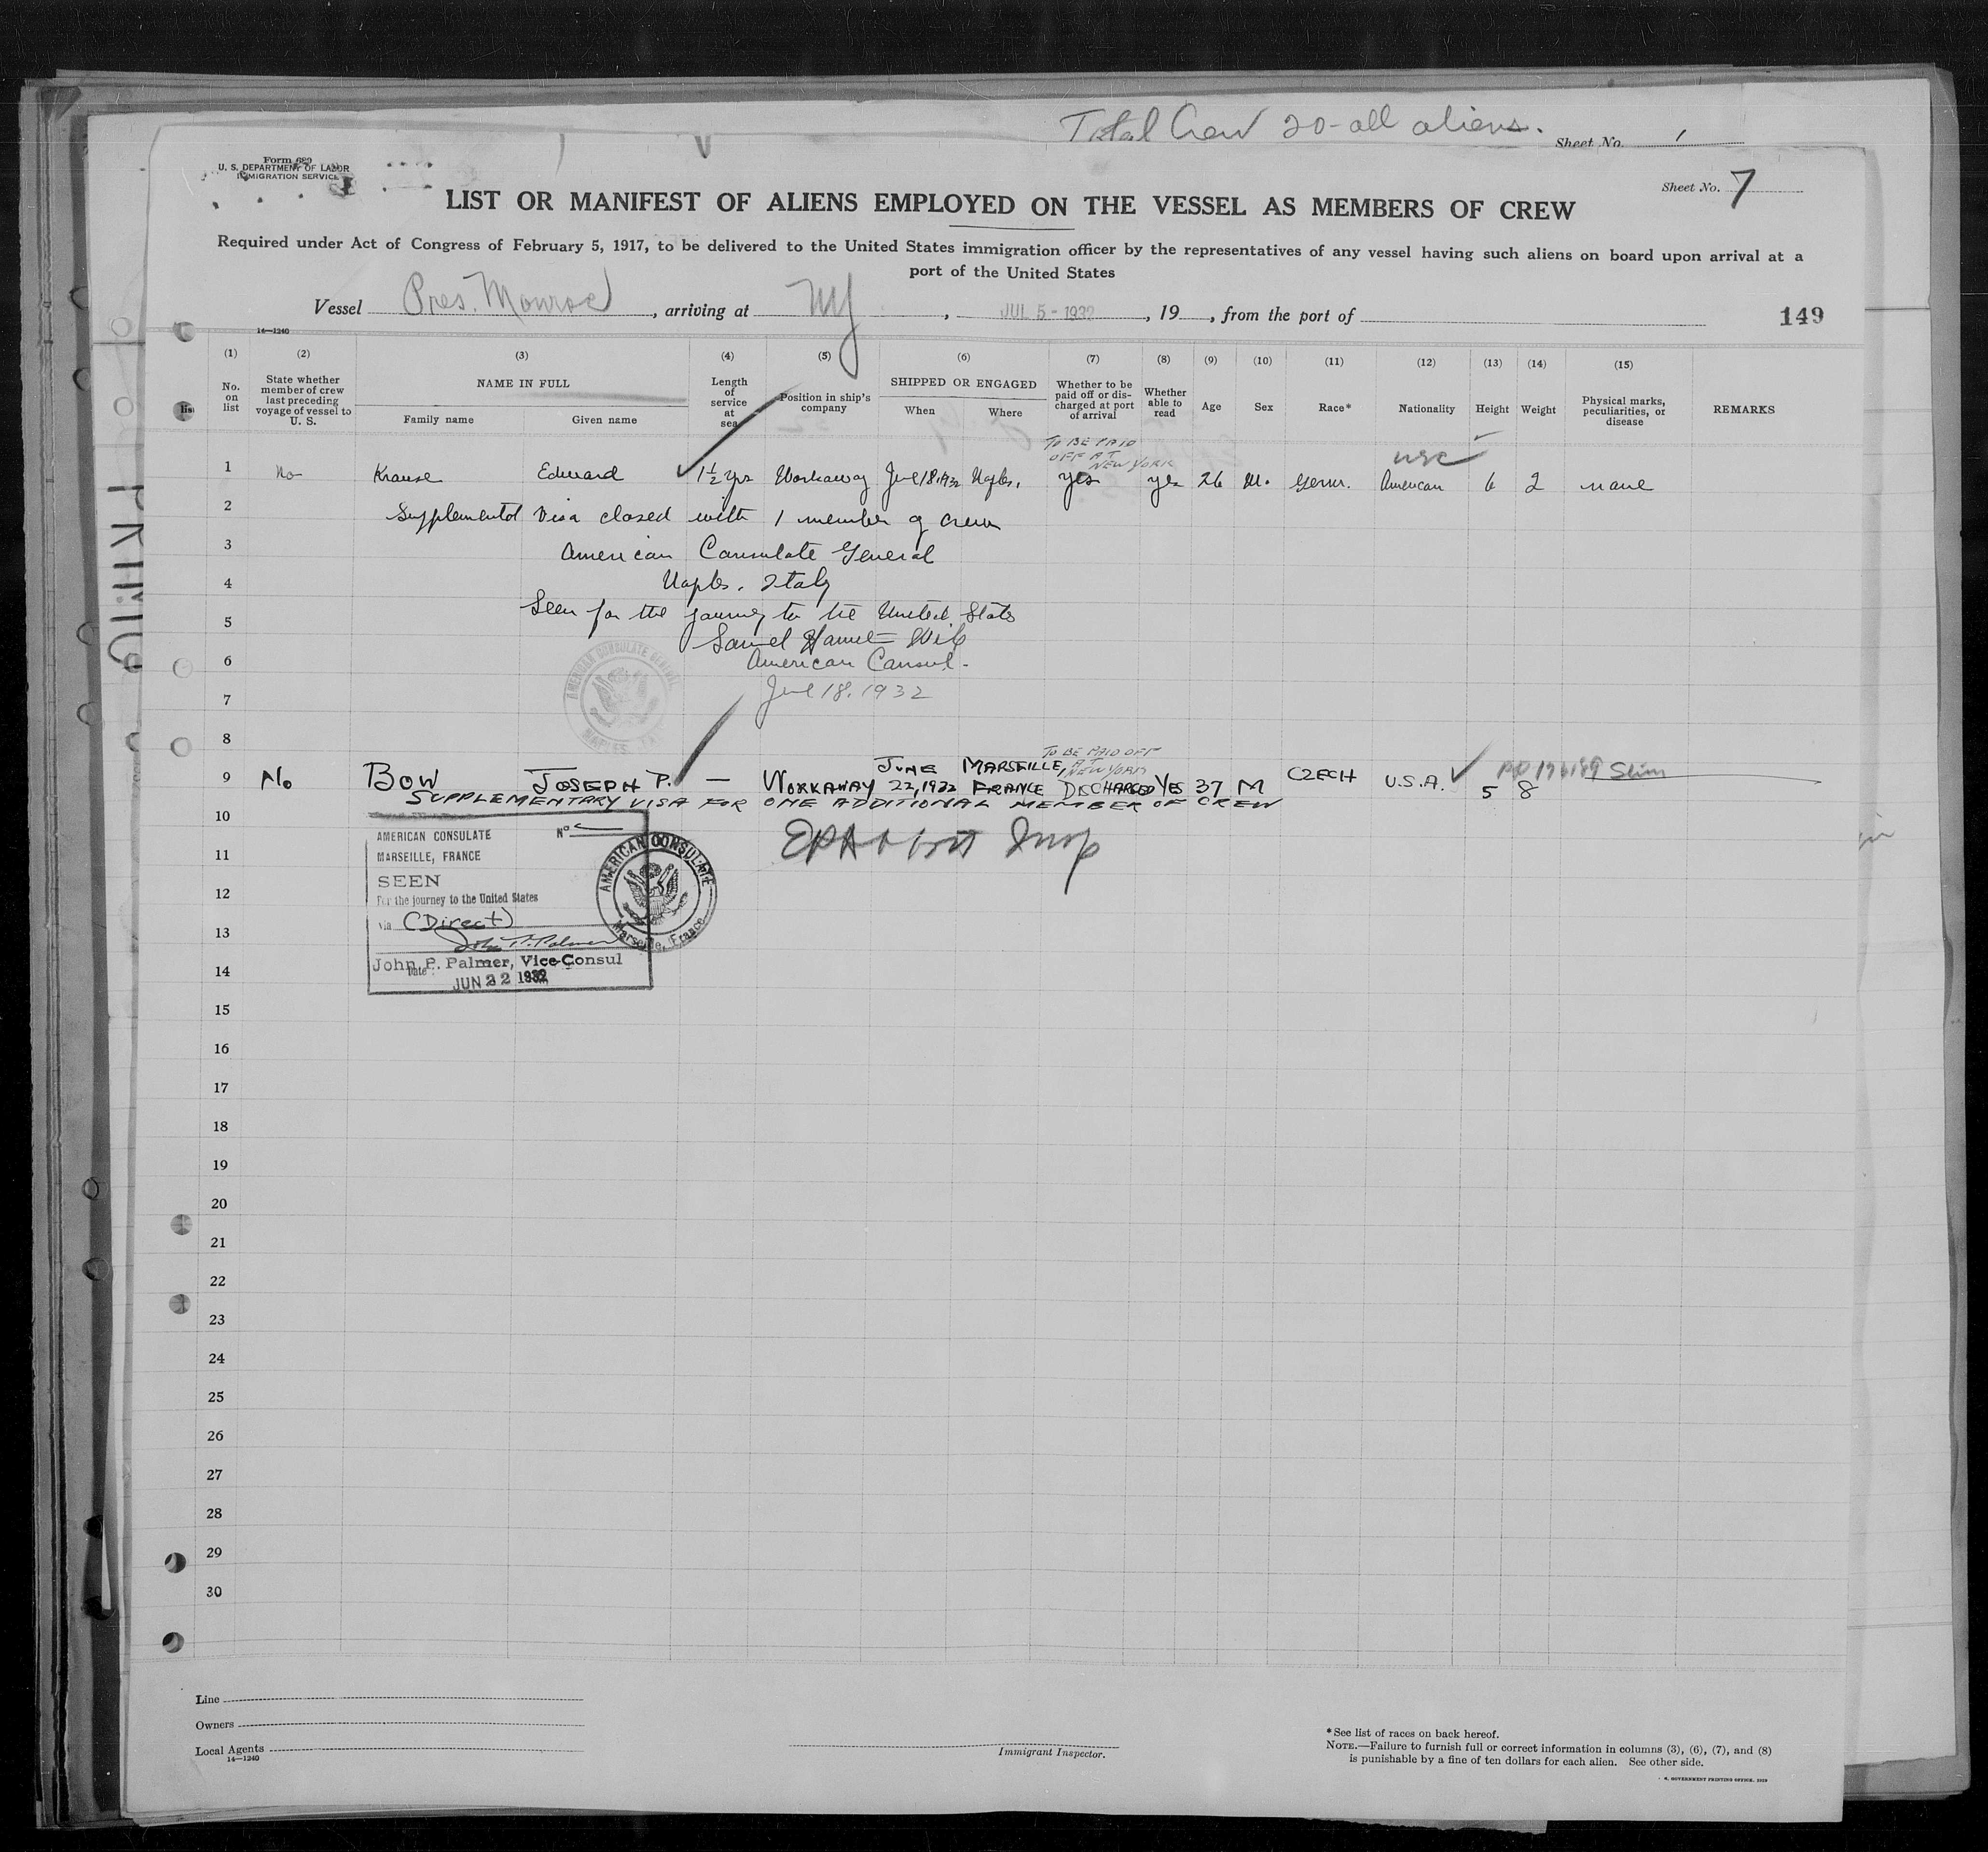 Total Crew 20-all aliens.
Sheet No. 1
Form 689
U. S. DEPARTMENT OF LABOR
IMMIGRATION SERVICE
Sheet No. 7
LIST OR MANIFEST OF ALIENS EMPLOYED ON THE VESSEL AS MEMBERS OF CREW
Required under Act of Congress of February 5, 1917, to be delivered to the United States immigration officer by the representatives of any vessel having such aliens on board upon arrival at a
port of the United States
Vessel Pres. Monroe, arriving at NY, JUL 5 - 1932, 19, from the port of
149
14—1240
(1) (2) (3) (4) (5) (6) (7) (8) (9) (10) (11) (12) (13) (14) (15)
No. on list
State whether member of crew last preceding voyage of vessel to U. S.
NAME IN FULL
Family name Given name
Length of service at sea
Position in ship's company
SHIPPED OR ENGAGED
When Where
Whether to be paid off or discharged at port of arrival
Whether able to read
Age Sex Race* Nationality Height Weight
Physical marks, peculiarities, or disease
REMARKS
TO BE PAID
OFF AT
NEW YORK
usc
1 No Krause Edward 1½ yrs Workaway June 18, 1932 Naples, yes yes 26 M. Germ. American 6 2 none
2 Supplemental Visa closed with 1 member of crew
3 American Consulate General
4 Naples, Italy
5 Seen for the journey to the United States
6 American Consul.
7 June 18, 1932
AMERICAN CONSULATE GENERAL
NAPLES, ITALY
8
TO BE PAID OFF
AT
NEW YORK
9 No BOW JOSEPH P. — WORKAWAY JUNE 22, 1932 MARSEILLE, FRANCE DISCHARGED YES 37 M CZECH U.S.A. 5 8 Slim
SUPPLEMENTARY VISA FOR ONE ADDITIONAL MEMBER OF CREW
10
11
12
13
14
AMERICAN CONSULATE No
MARSEILLE, FRANCE
SEEN
For the journey to the United States
via (Direct)
John P. Palmer
John P. Palmer, Vice-Consul
Date JUN 22 1932
AMERICAN CONSULATE
Marseille, France
Insp
15
16
17
18
19
20
21
22
23
24
25
26
27
28
29
30
Line
Owners
Local Agents
14—1240
Immigrant Inspector.
*See list of races on back hereof.
NOTE.—Failure to furnish full or correct information in columns (3), (6), (7), and (8)
is punishable by a fine of ten dollars for each alien. See other side.
GOVERNMENT PRINTING OFFICE. 1929